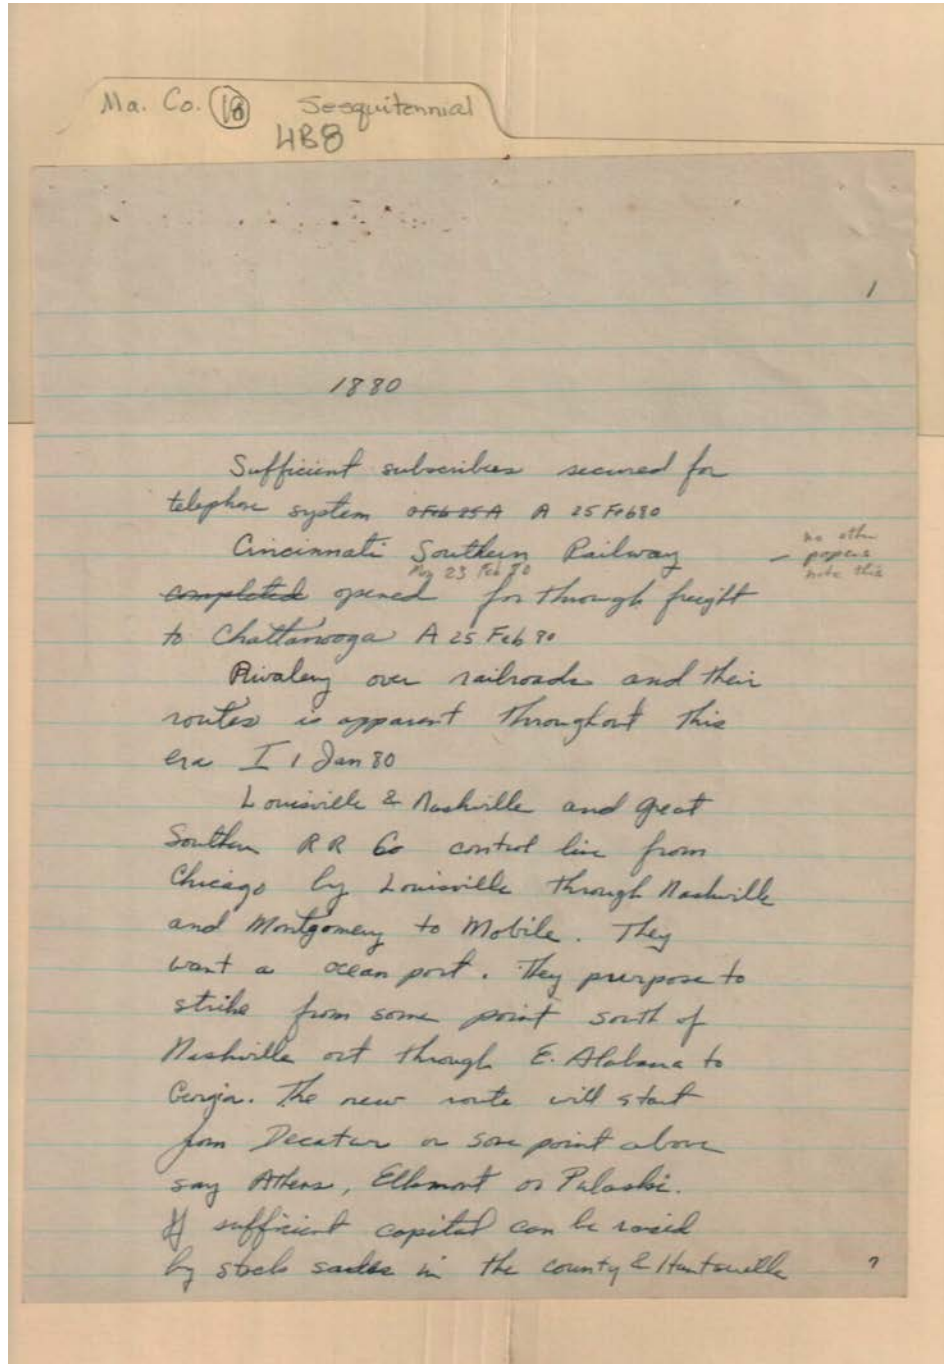 Ma. Co. 18 Sesquitennial
4B8
1
1880
Sufficient subscribers secured for
telephone system A 25 Feb 80
Cincinnati Southern Railway
no other
– papers
note this
23 Feb 80
completed opened for through freight
to Chattanooga A 25 Feb 80
Rivalry over railroads and their
routes is apparent throughout this
era I 1 Jan 80
Louisville & Nashville and Great
Southern RR Co control line from
Chicago by Louisville through Nashville
and Montgomery to Mobile. They
want a ocean port. They purpose to
strike from some point south of
Nashville out through E. Alabama to
Georgia. The new route will start
from Decatur or some point above
say Athens, Elkmont or Pulaski.
If sufficient capital can be raised
by stock sales in the county & Huntsville
?